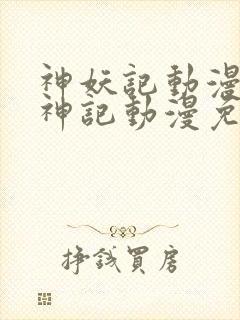 神妖記動漫
神記動漫免
掙錢買房